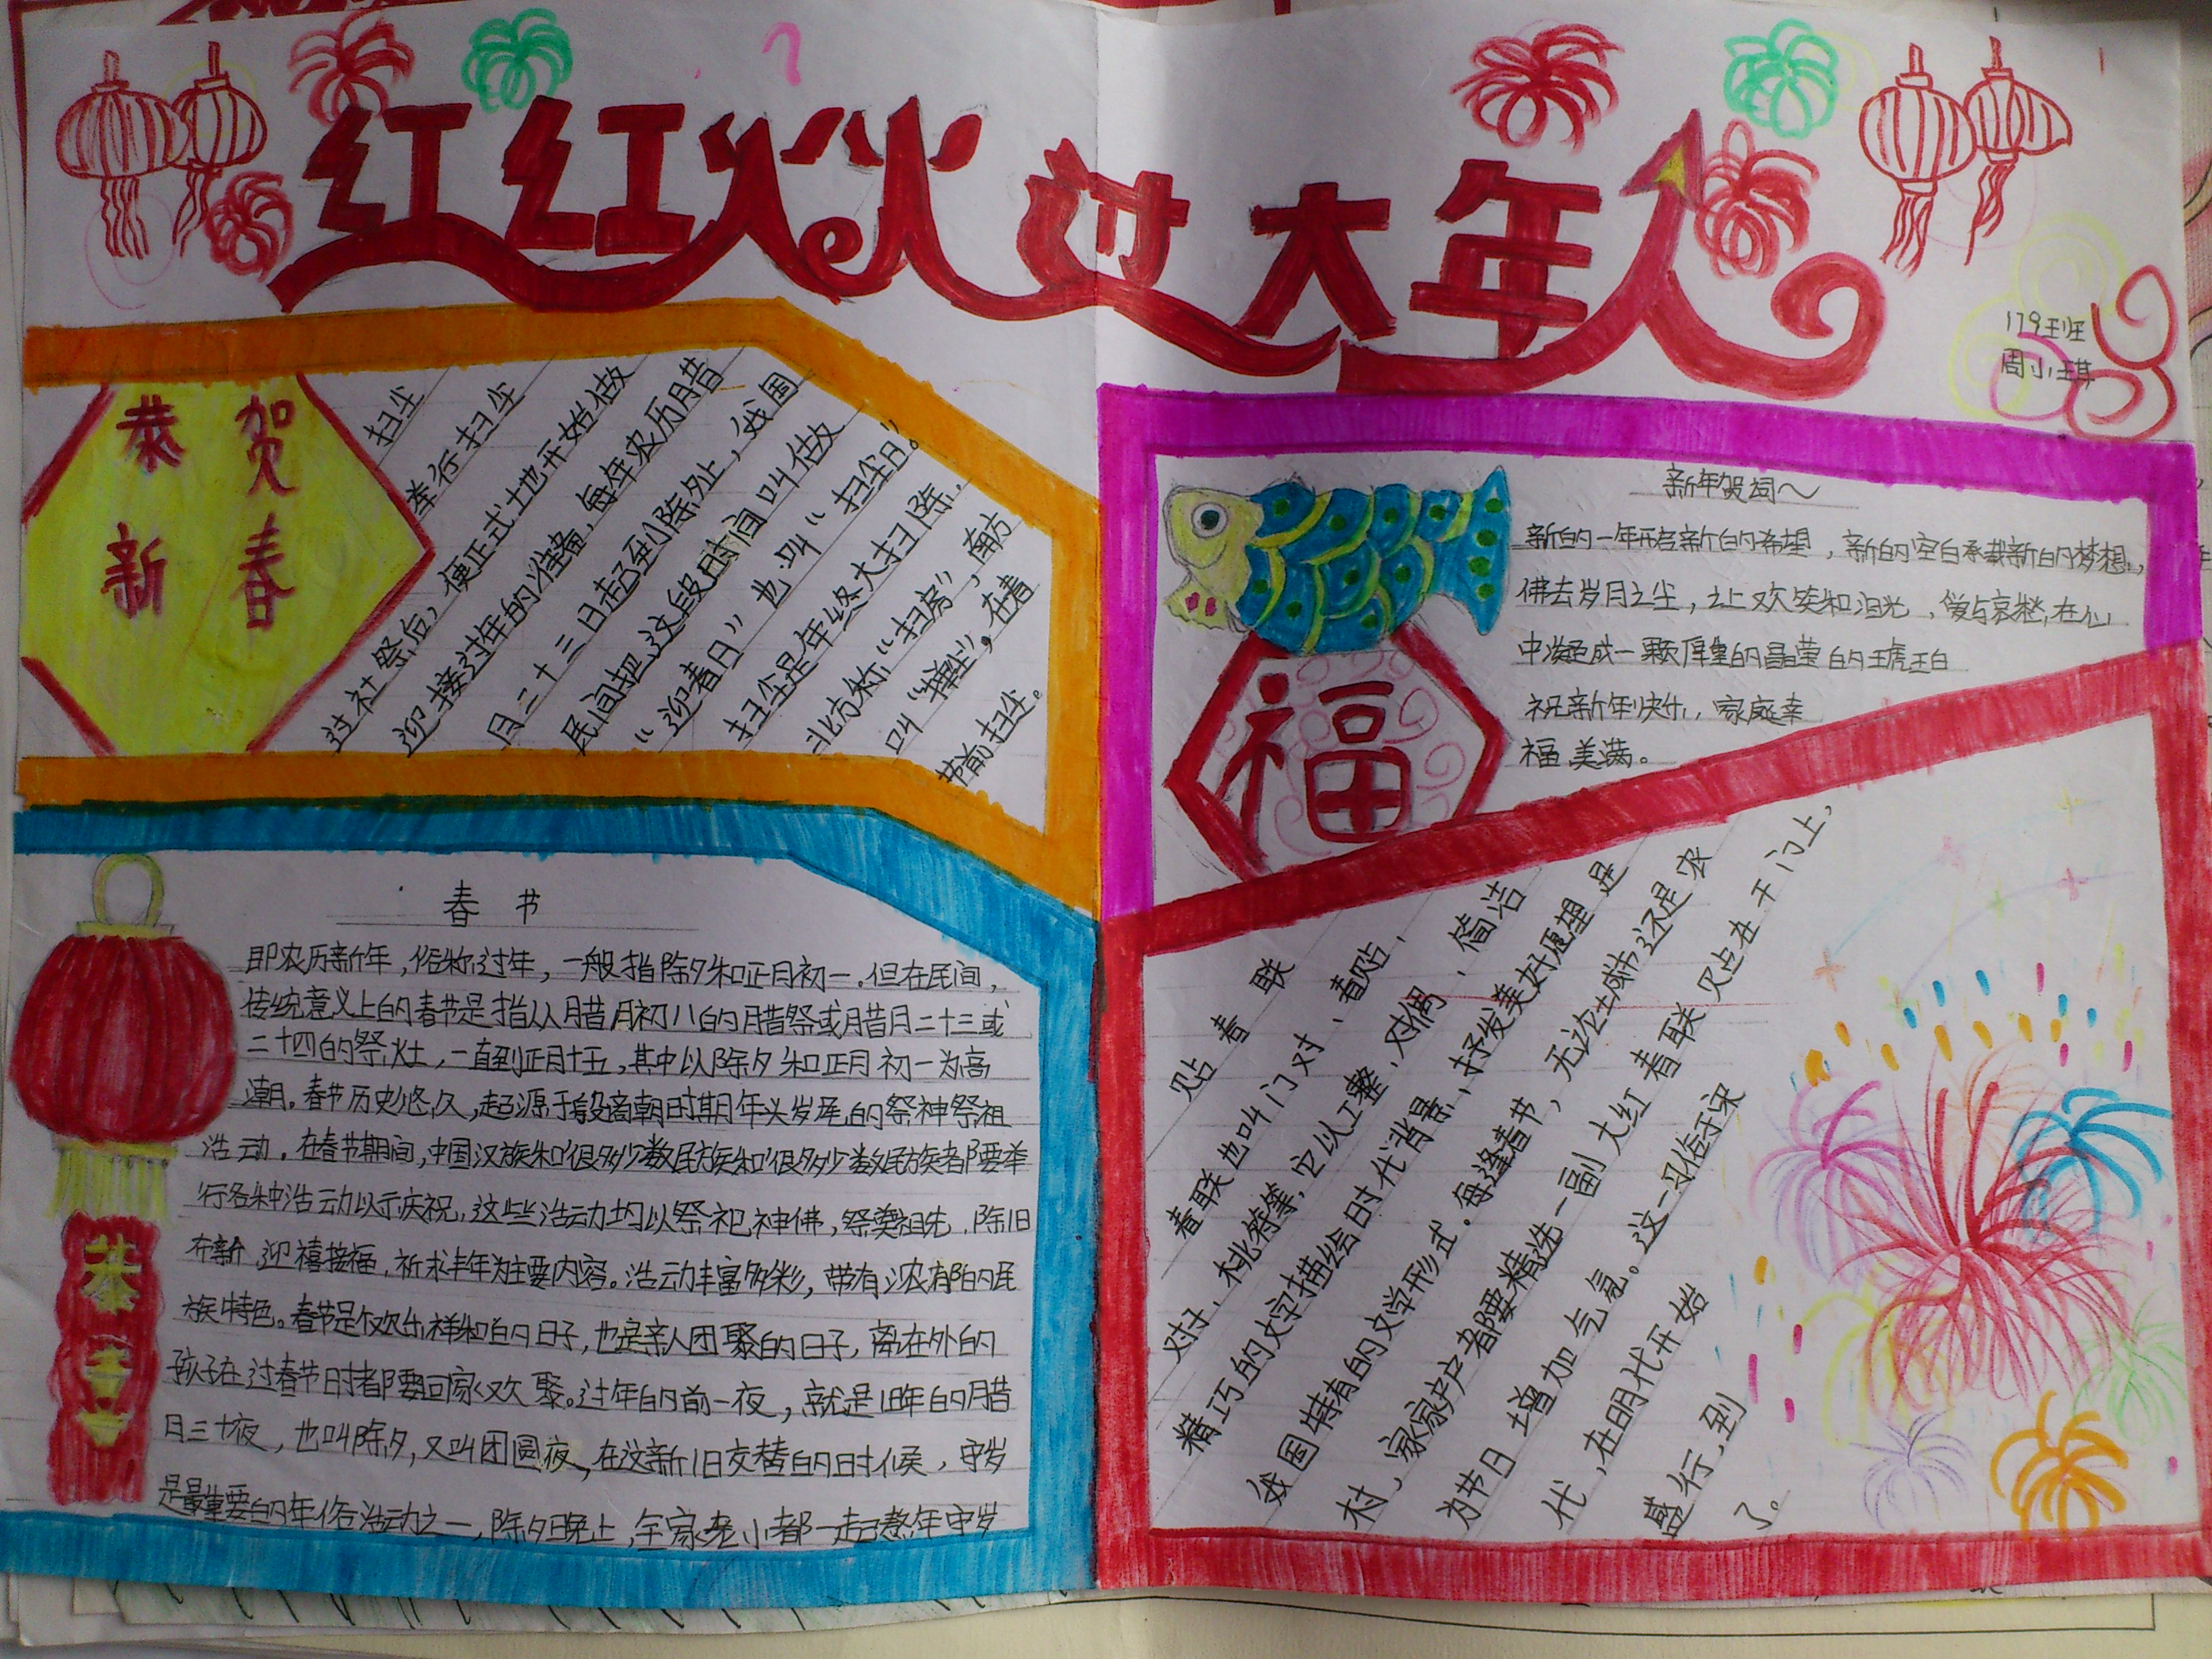 红红火火过大年
179班
周小琪
恭贺
新春
扫尘
举行扫尘
过社祭后，便正式土地开始做
迎接过年的准备，每年农历月昔
月二十三日起到除处止，我国
民间把这段时间叫做
“迎春日”也叫“扫尘日。”
扫尘是年终大扫除，
北方称“扫房”，南方
叫“掸尘”，在春
节前扫尘。
春节
即农历新年，俗称过年，一般指除夕和正月初一。但在民间，
传统意义上的春节是指从腊月初八的腊祭或腊月二十三或
二十四的祭灶，一直到正月十五，其中以除夕和正月初一为高
潮。春节历史悠久，起源于殷商朝时期年头岁尾的祭神祭祖
活动。在春节期间，中国汉族和很多少数民族和很多少数民族都要举
行各种活动以示庆祝，这些活动均以祭祀神佛，祭奠祖先，除旧
布新，迎禧接福，祈求丰年为主要内容。活动丰富多彩，带有浓郁的民
族特色。春节是个欢乐祥和的日子，也是亲人团聚的日子，离在外的
孩子在过春节时都要回家欢聚。过年的前一夜，就是旧年的腊
月三十夜，也叫除夕，又叫团圆夜，在这新旧交替的时候，守岁
是最重要的年俗活动之一，除夕晚上，全家老小都一起熬年守岁
恭
喜
新年贺词～
新的一年开启新的希望，新的空白承载新的梦想，
佛去岁月之尘，让欢笑和泪光，爱与哀愁，在心
中凝成一颗厚重的晶莹的琥珀
祝新年快乐，家庭幸
福美满。
福
贴春联
春联也叫门对、春贴、
对子、桃符等，它以工整、对偶、简洁
精巧的文字描绘时代背景，抒发美好愿望是
我国特有的文学形式。每逢春节，无论城市还是农
村、家家户户都要精选一副大红春联贴在于门上，
为节日增加气氛。这一习俗于宋
代，在明代开始
盛行，到
了。